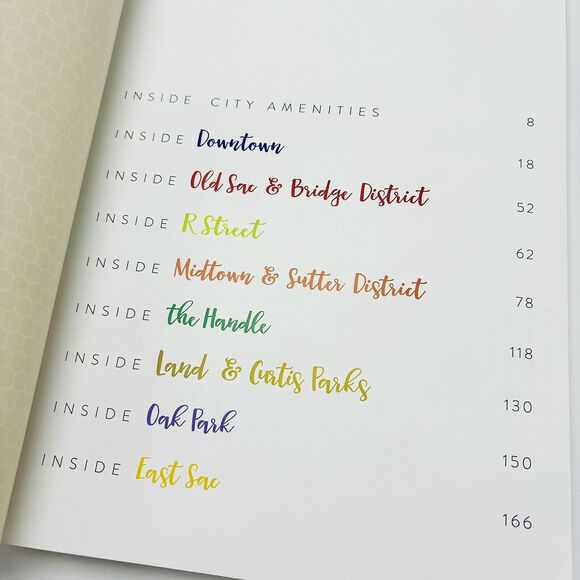 INSIDE CITY AMENITIES 8
INSIDE Downtown 18
INSIDE Old Sac & Bridge District 52
INSIDE R Street 62
INSIDE Midtown & Sutter District 78
INSIDE the Handle 118
INSIDE Land & Curtis Parks 130
INSIDE Oak Park 150
INSIDE East Sac 166